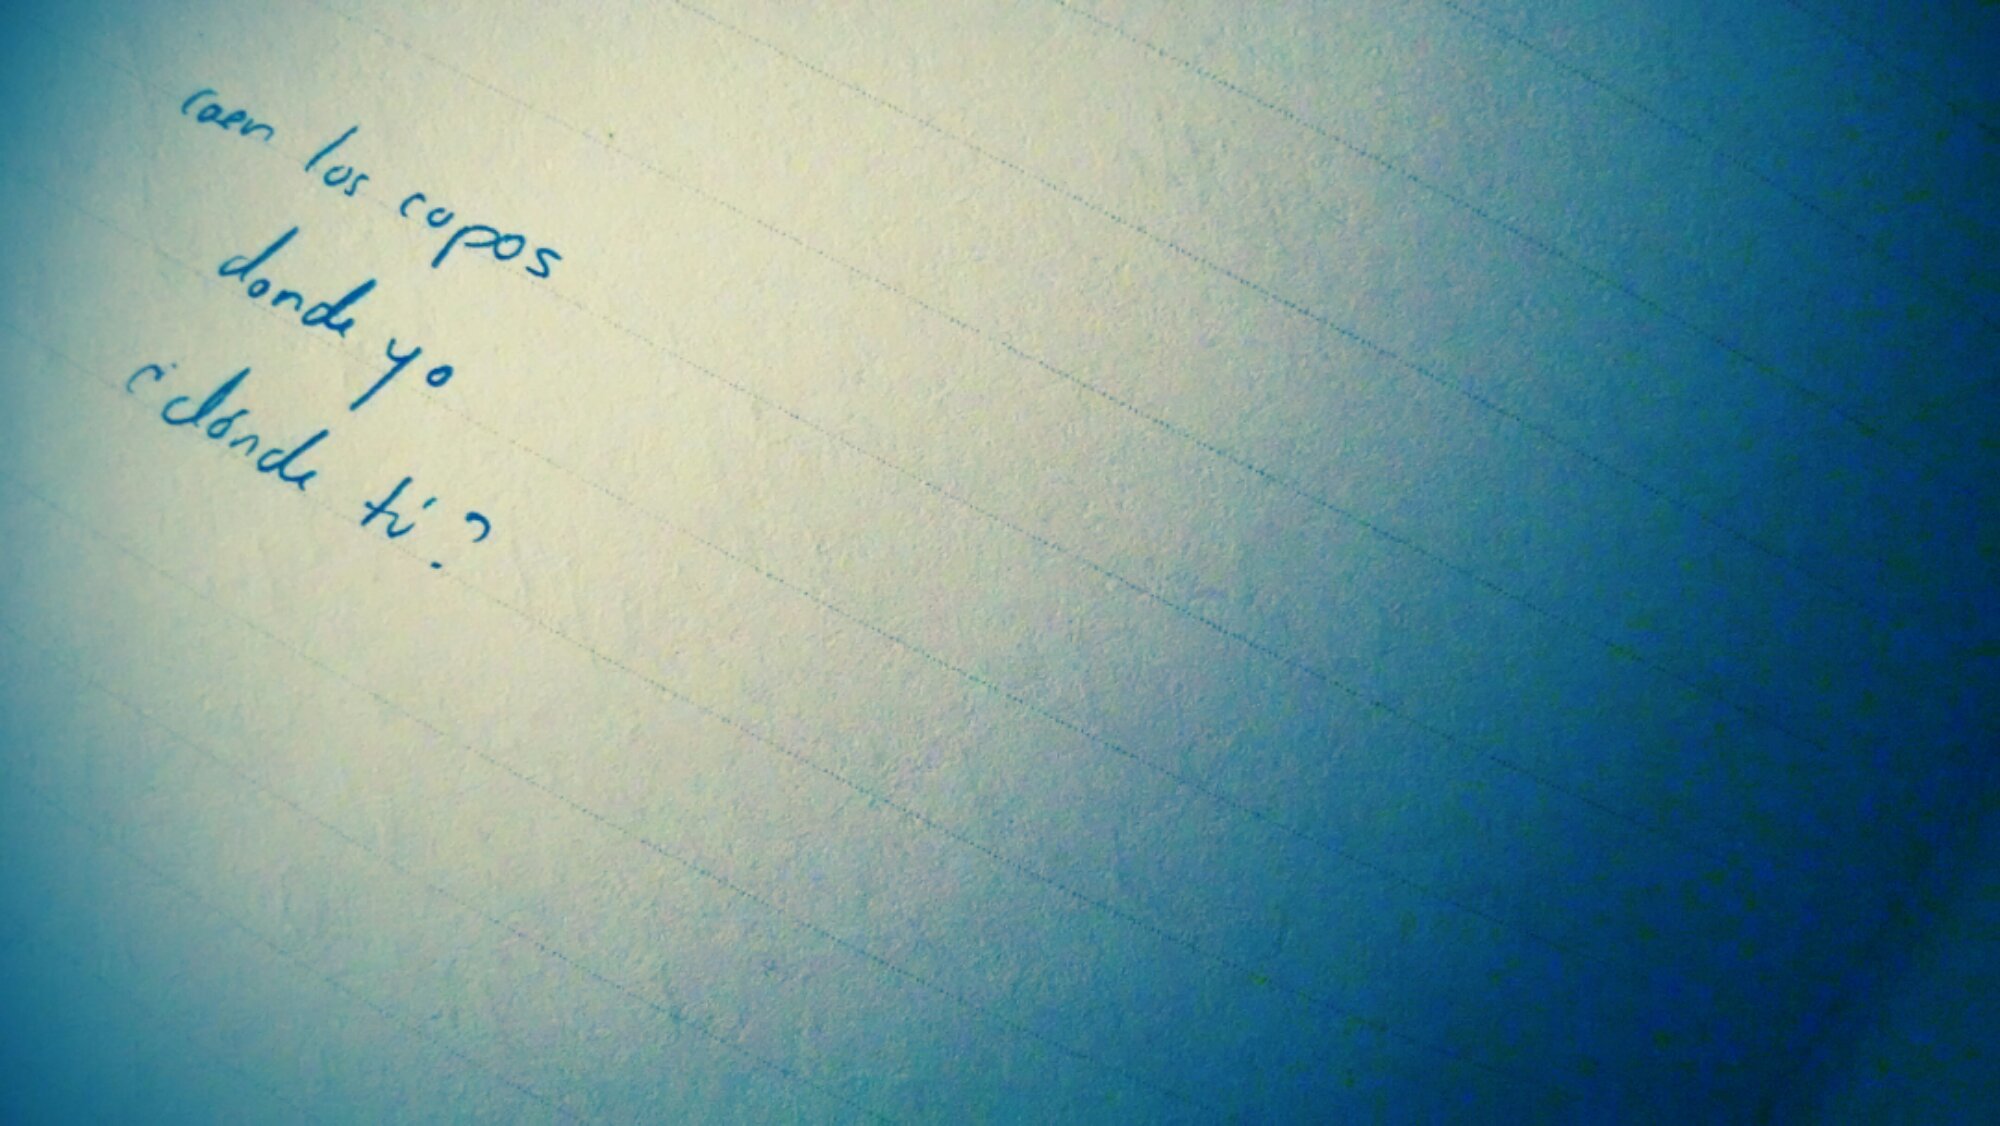 caen los copos
donde yo
¿dónde tú?